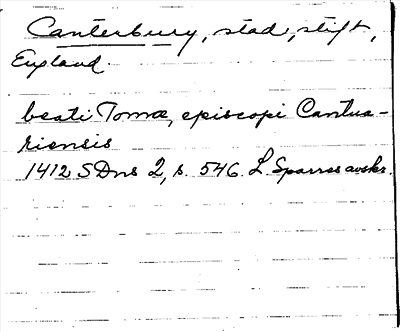 Canterbury, stad, stift,
England.
beati Tomæ, episcopi Cantua-
riensis
1412 SDns 2, s. 546. L Sparres avskr.